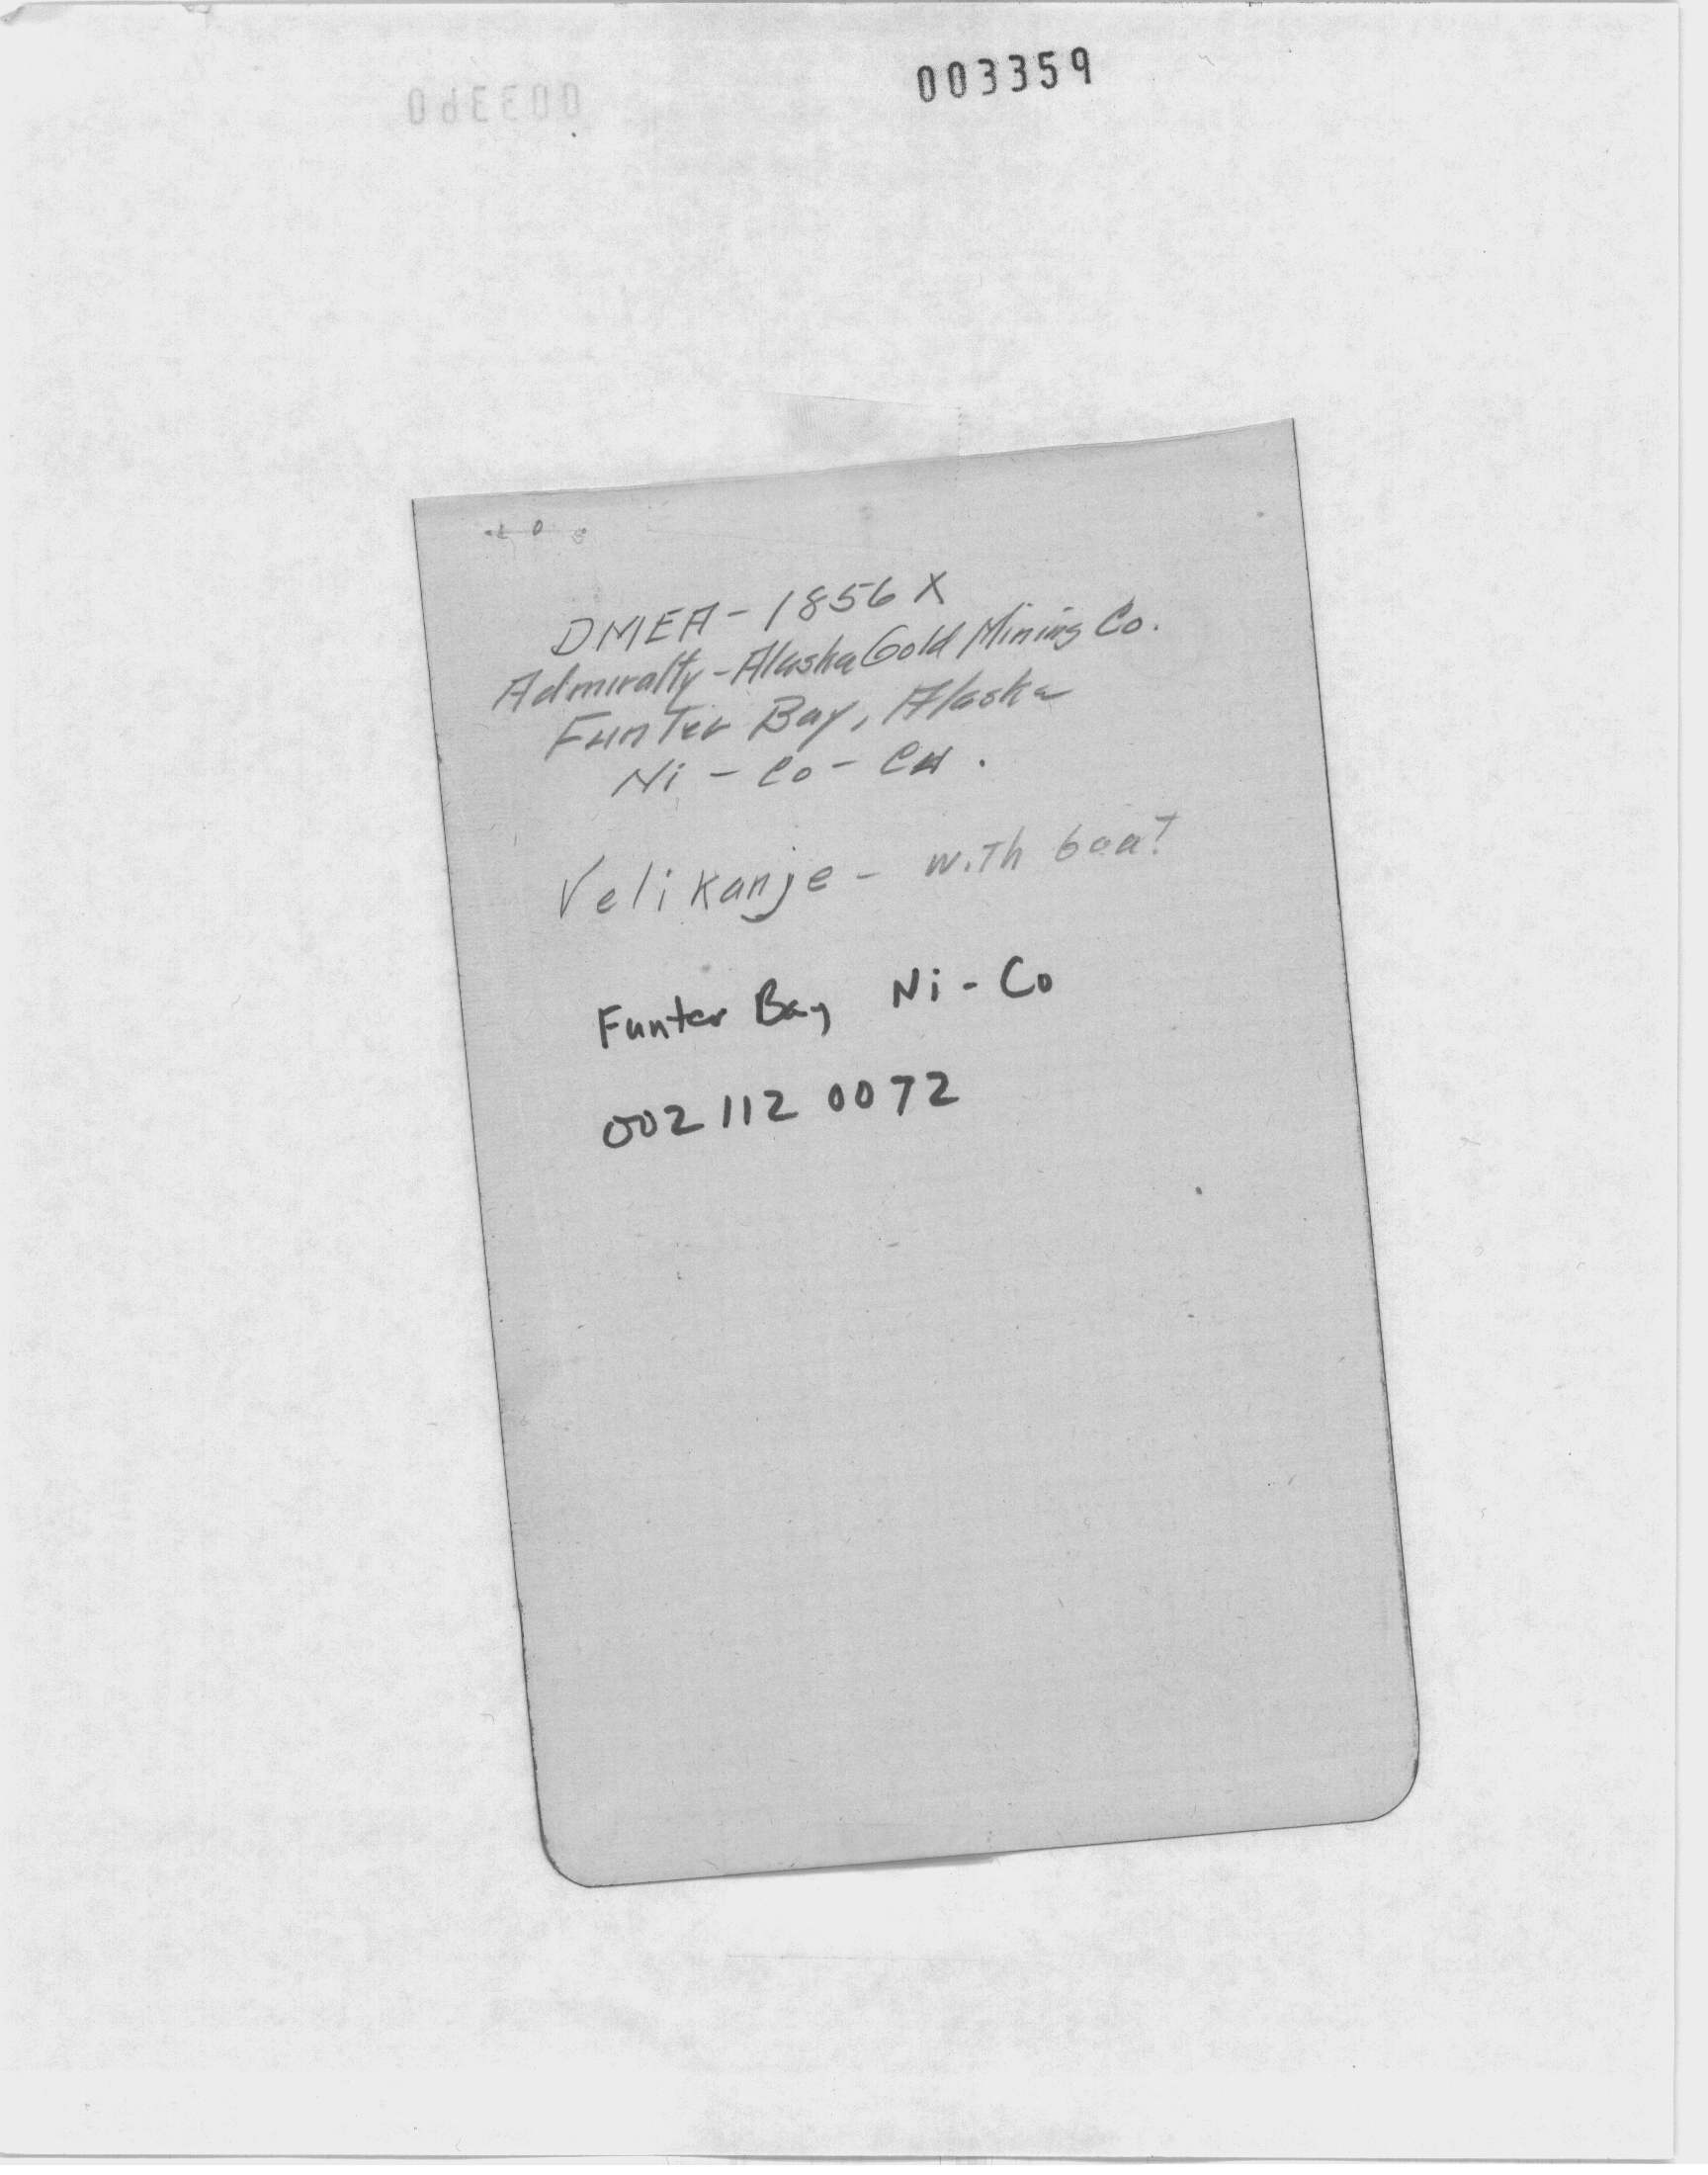 003359
003360
DMEA-1856X
Admiralty-Alaska Gold Mining Co.
Funter Bay, Alaska
Ni - Co - Cu.
Velikanje - with boat
Funter Bay Ni-Co
002 112 0072